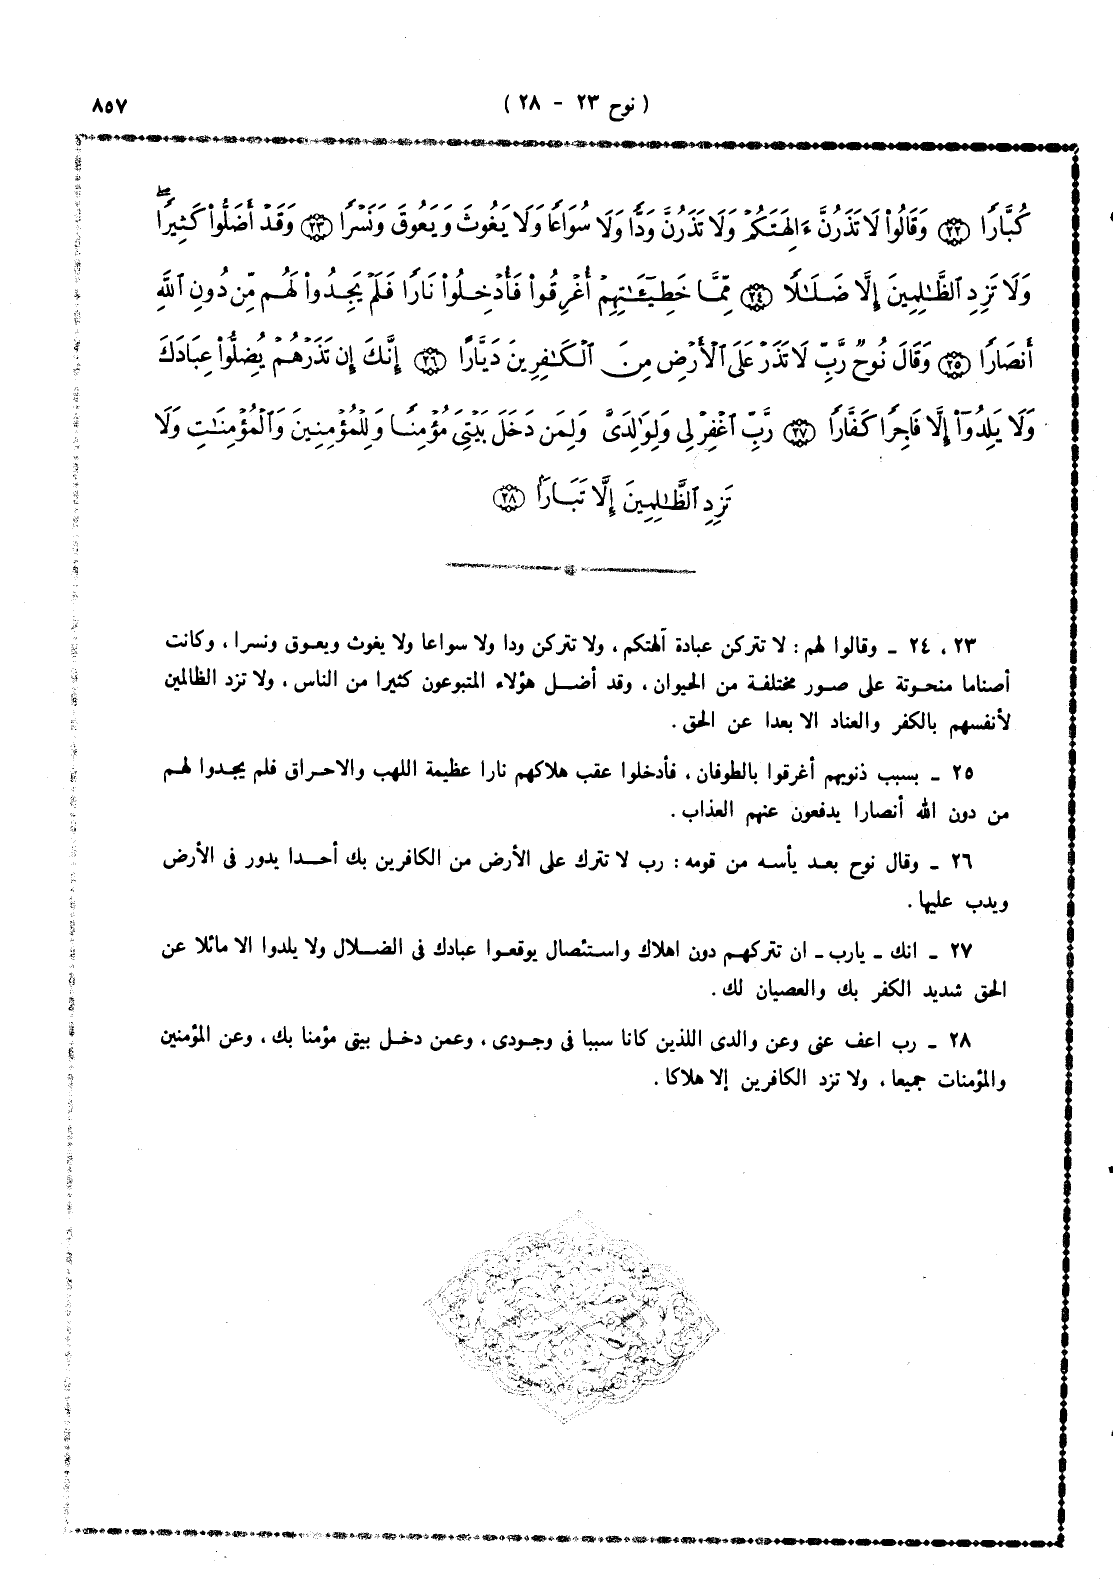 ( نوح ٢٣ - ٢٨ ) ٨٥٧
كُبَّارًا ٢٢ وَقَالُوا۟ لَا تَذَرُنَّ ءَالِهَتَكُمْ وَلَا تَذَرُنَّ وَدًّا وَلَا سُوَاعًا وَلَا يَغُوثَ وَيَعُوقَ وَنَسْرًا ٢٣ وَقَدْ أَضَلُّوا۟ كَثِيرًا ۖ
وَلَا تَزِدِ ٱلظَّـٰلِمِينَ إِلَّا ضَلَـٰلًا ٢٤ مِّمَّا خَطِيٓـَٔـٰتِهِمْ أُغْرِقُوا۟ فَأُدْخِلُوا۟ نَارًا فَلَمْ يَجِدُوا۟ لَهُم مِّن دُونِ ٱللَّهِ
أَنصَارًا ٢٥ وَقَالَ نُوحٌ رَّبِّ لَا تَذَرْ عَلَى ٱلْأَرْضِ مِنَ ٱلْكَـٰفِرِينَ دَيَّارًا ٢٦ إِنَّكَ إِن تَذَرْهُمْ يُضِلُّوا۟ عِبَادَكَ
وَلَا يَلِدُوٓا۟ إِلَّا فَاجِرًا كَفَّارًا ٢٧ رَّبِّ ٱغْفِرْ لِى وَلِوَٰلِدَىَّ وَلِمَن دَخَلَ بَيْتِىَ مُؤْمِنًا وَلِلْمُؤْمِنِينَ وَٱلْمُؤْمِنَـٰتِ وَلَا
تَزِدِ ٱلظَّـٰلِمِينَ إِلَّا تَبَارًۢا ٢٨
٢٣ ، ٢٤ ـ وقالوا لهم : لا تتركن عبادة آلهتكم ، ولا تتركن ودا ولا سواعا ولا يغوث ويعوق ونسرا ، وكانت
أصناما منحوتة على صور مختلفة من الحيوان ، وقد أضل هؤلاء المتبوعون كثيرا من الناس ، ولا تزد الظالمين
لأنفسهم بالكفر والعناد الا بعدا عن الحق .
٢٥ ـ بسبب ذنوبهم أغرقوا بالطوفان ، فأدخلوا عقب هلاكهم نارا عظيمة اللهب والاحراق فلم يجدوا لهم
من دون الله أنصارا يدفعون عنهم العذاب .
٢٦ ـ وقال نوح بعد يأسه من قومه : رب لا تترك على الأرض من الكافرين بك أحدا يدور فى الأرض
ويدب عليها .
٢٧ ـ انك ـ يارب ـ ان تتركهم دون اهلاك واستئصال يوقعوا عبادك فى الضلال ولا يلدوا الا مائلا عن
الحق شديد الكفر بك والعصيان لك .
٢٨ ـ رب اعف عنى وعن والدى اللذين كانا سببا فى وجودى ، وعمن دخل بيتى مؤمنا بك ، وعن المؤمنين
والمؤمنات جميعا ، ولا تزد الكافرين إلا هلاكا .